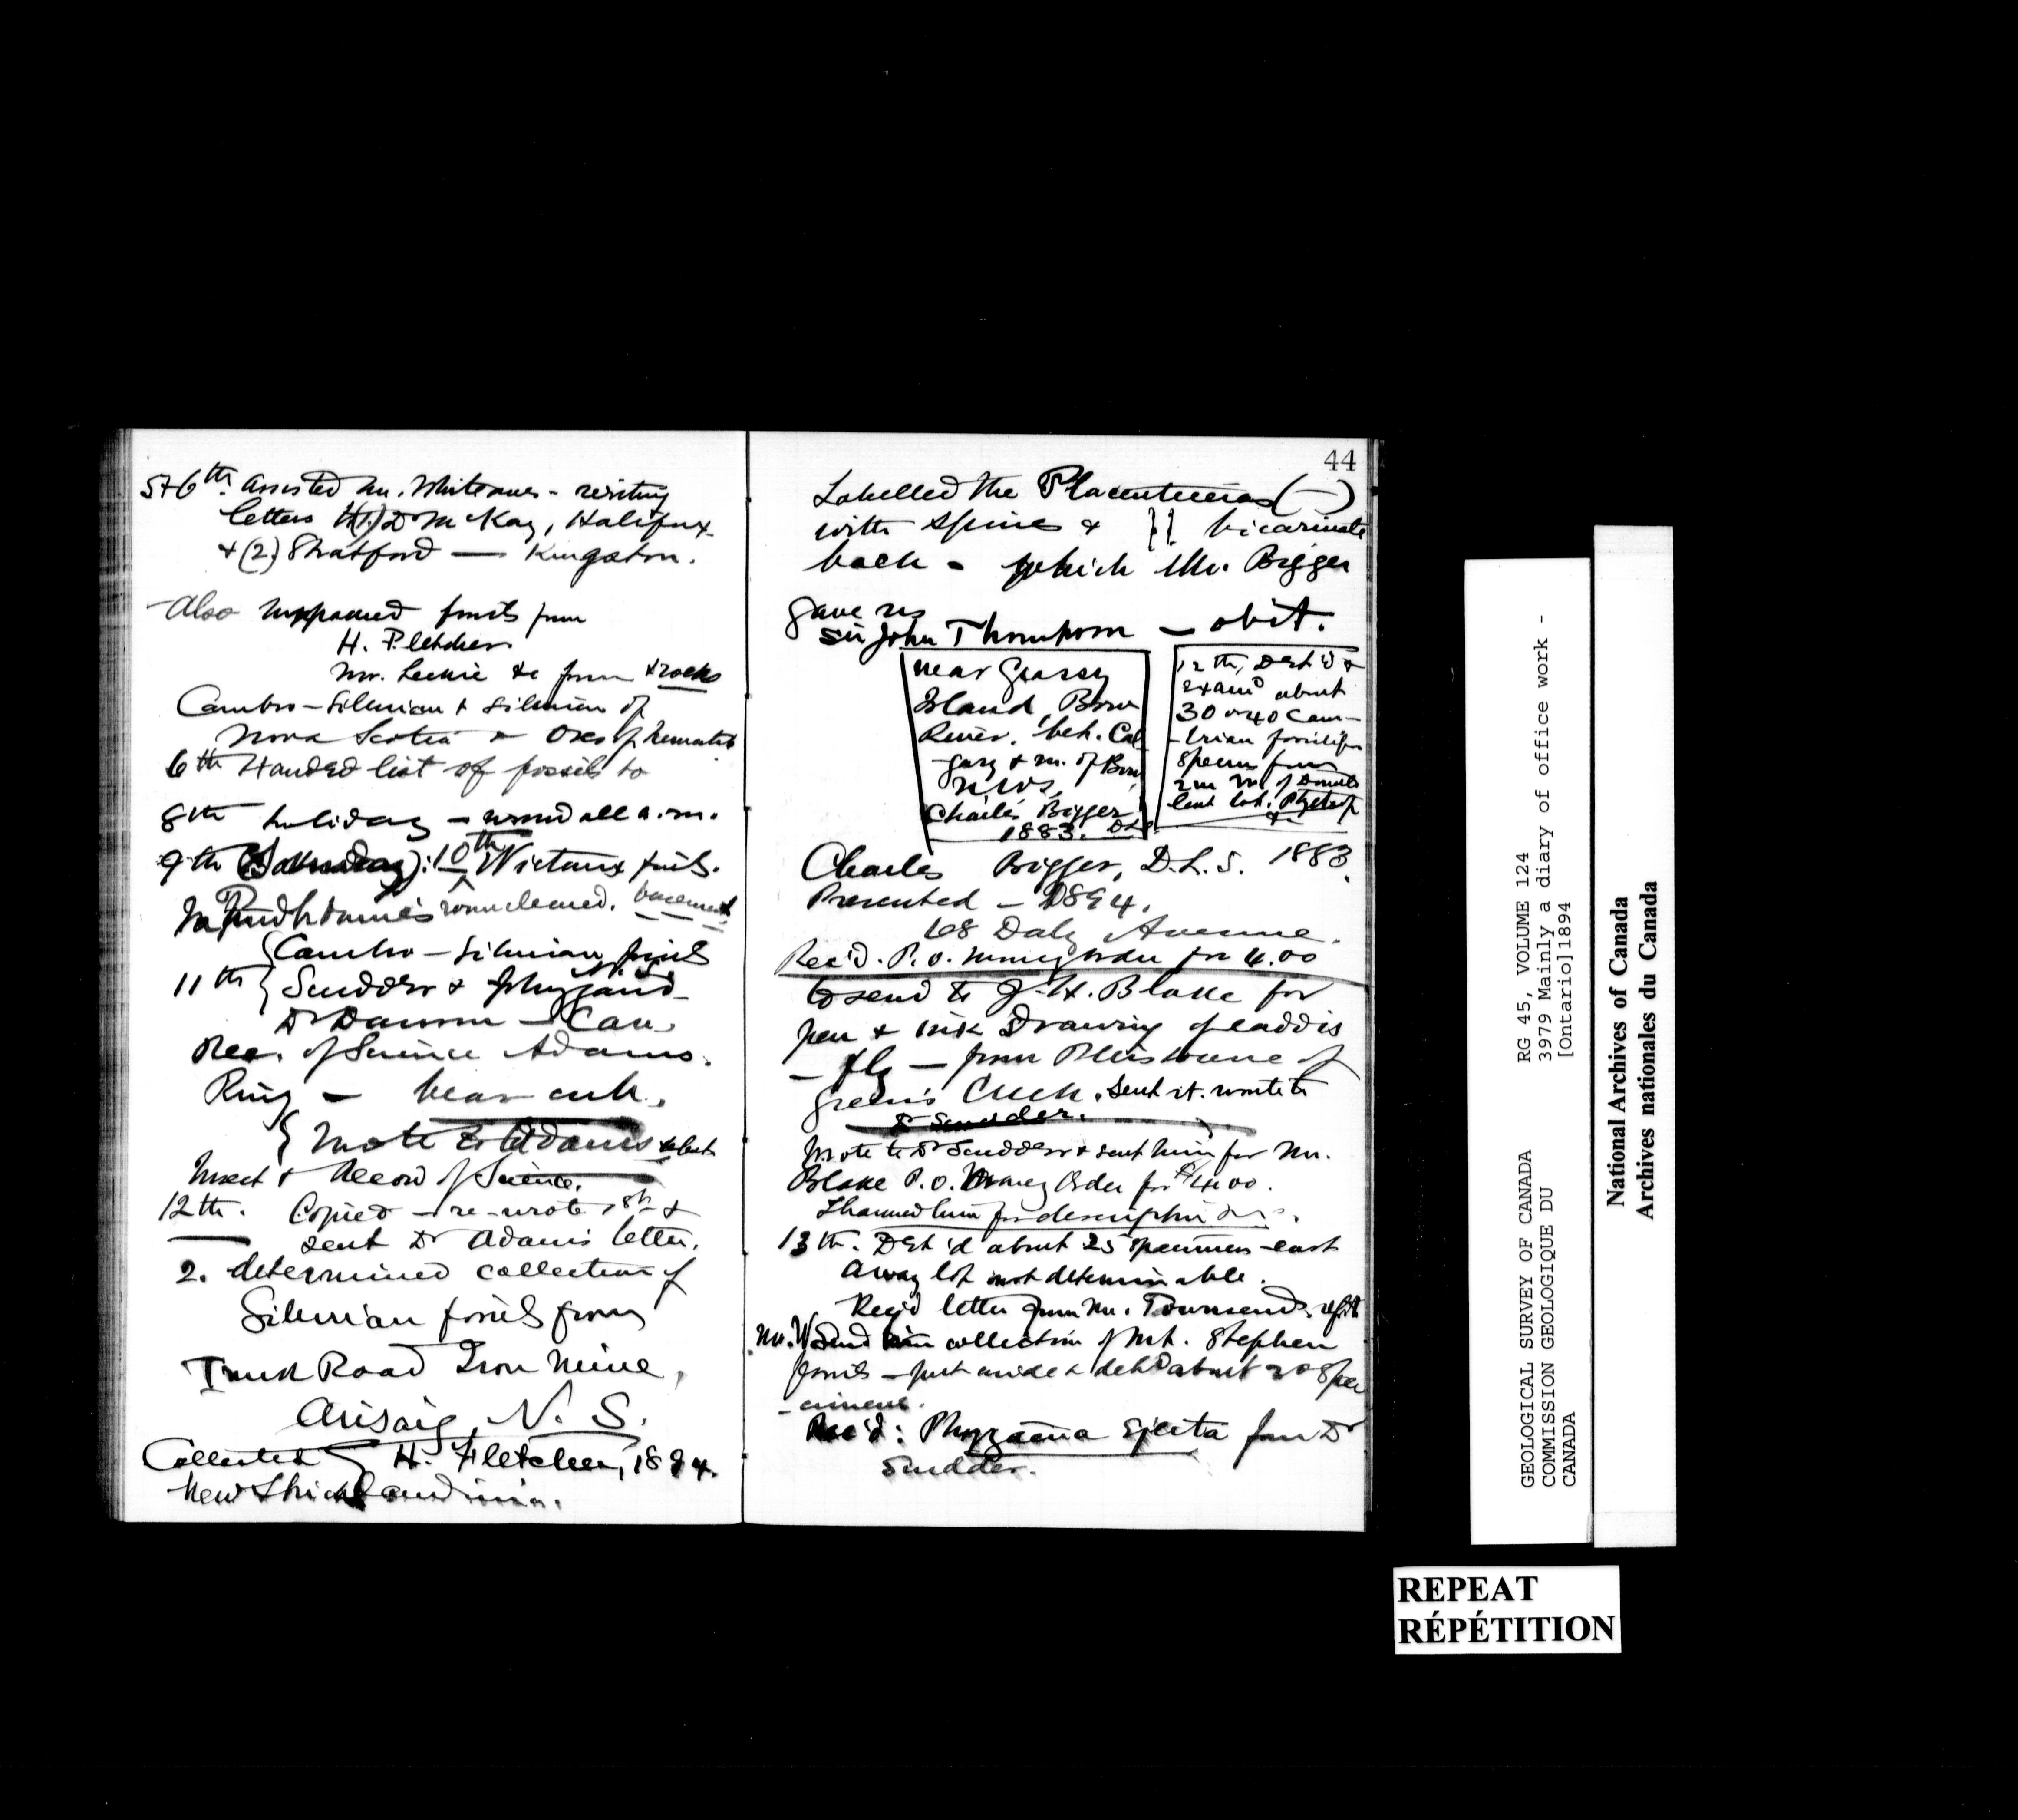 5+6th. Assisted Mr. Whiteaves - writing
letters (1) Dr McKay, Halifax
+ (2) Stratford — Kingston.
Also unpacked fossils from
H. Fletcher
Mr. Leckie &c from + rocks
Cambro-Silurian + Silurian of
Nova Scotia + Ores of hematite
6th Handed list of fossils to
8th holiday - all a.m.
9th (Sunday): 10th fossils.
room cleaned. basement
Cambro-Silurian fossils
N.S.
11th { Scudder & phryganid
Dr Dawson - Can.
Rec. of Science Adams.
Ring - bear cub.
{ Wrote to Adams about
Insect + Record of Science.
12th. Copied - re-wrote +
sent Dr Adams letter.
2. determined collection of
Silurian fossils from
Road Iron Mine,
Arisaig, N. S.
Collected H. Fletcher, 1894.
New Stricklandinia.
44
Labelled the Placenticeras (—)
with spines & bicarinate
back - which Mr. Bigger
gave us
Sir John Thompson — obit.
near Grassy
Island, Bow
River, bet. Cal
gary & m. of Bow
river,
Charles Bigger
1883. DLS
12th, Det'd +
exam'd about
30 or 40 Cam-
-brian
specms from
last lot.
Charles Bigger, D.L.S. 1883.
Presented - 1894.
168 Daly Avenue.
Rec'd. P.O. money order for 4.00
to send to J.H. Blake for
pen & ink Drawing of caddis
- fly - from Pleistocene of
Green's Creek. Sent it. wrote to
Dr Scudder.
Wrote to Dr Scudder & sent him for Mr.
Blake P.O. Money Order for $4.00.
Thanked him for description
13th. Det'd about 25 specimens - cast
away lot not determinable.
Rec'd letter from Mr. Townsend.
Mr. W collection of Mt. Stephen
fossils - put aside & det'd about 20 spec
-imens.
Rec'd: Phryganea ejecta from Dr
Scudder.
GEOLOGICAL SURVEY OF CANADA RG 45, VOLUME 124
COMMISSION GEOLOGIQUE DU 3979 Mainly a diary of office work -
CANADA [Ontario]1894
National Archives of Canada
Archives nationales du Canada
REPEAT
RÉPÉTITION